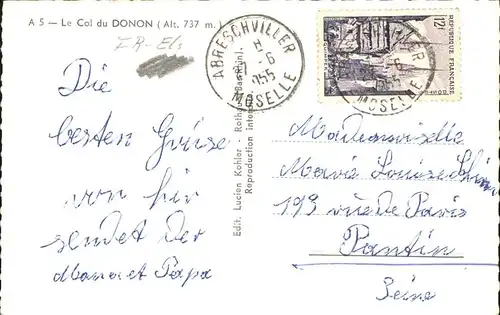 A 5 — Le Col du DONON ( Alt. 737 m. )
ABRESCHVILLER
MOSELLE
1955
12F
REPUBLIQUE FRANÇAISE
MOSELLE
Die
besten Grüsse
von hir
sendet der
Maman et Papa
Edit. Lucien Kohler - Rothau (Bas-Rhin).
Reproduction
Mademoiselle
Marie Louise
193 rue de Paris
Pantin
Seine